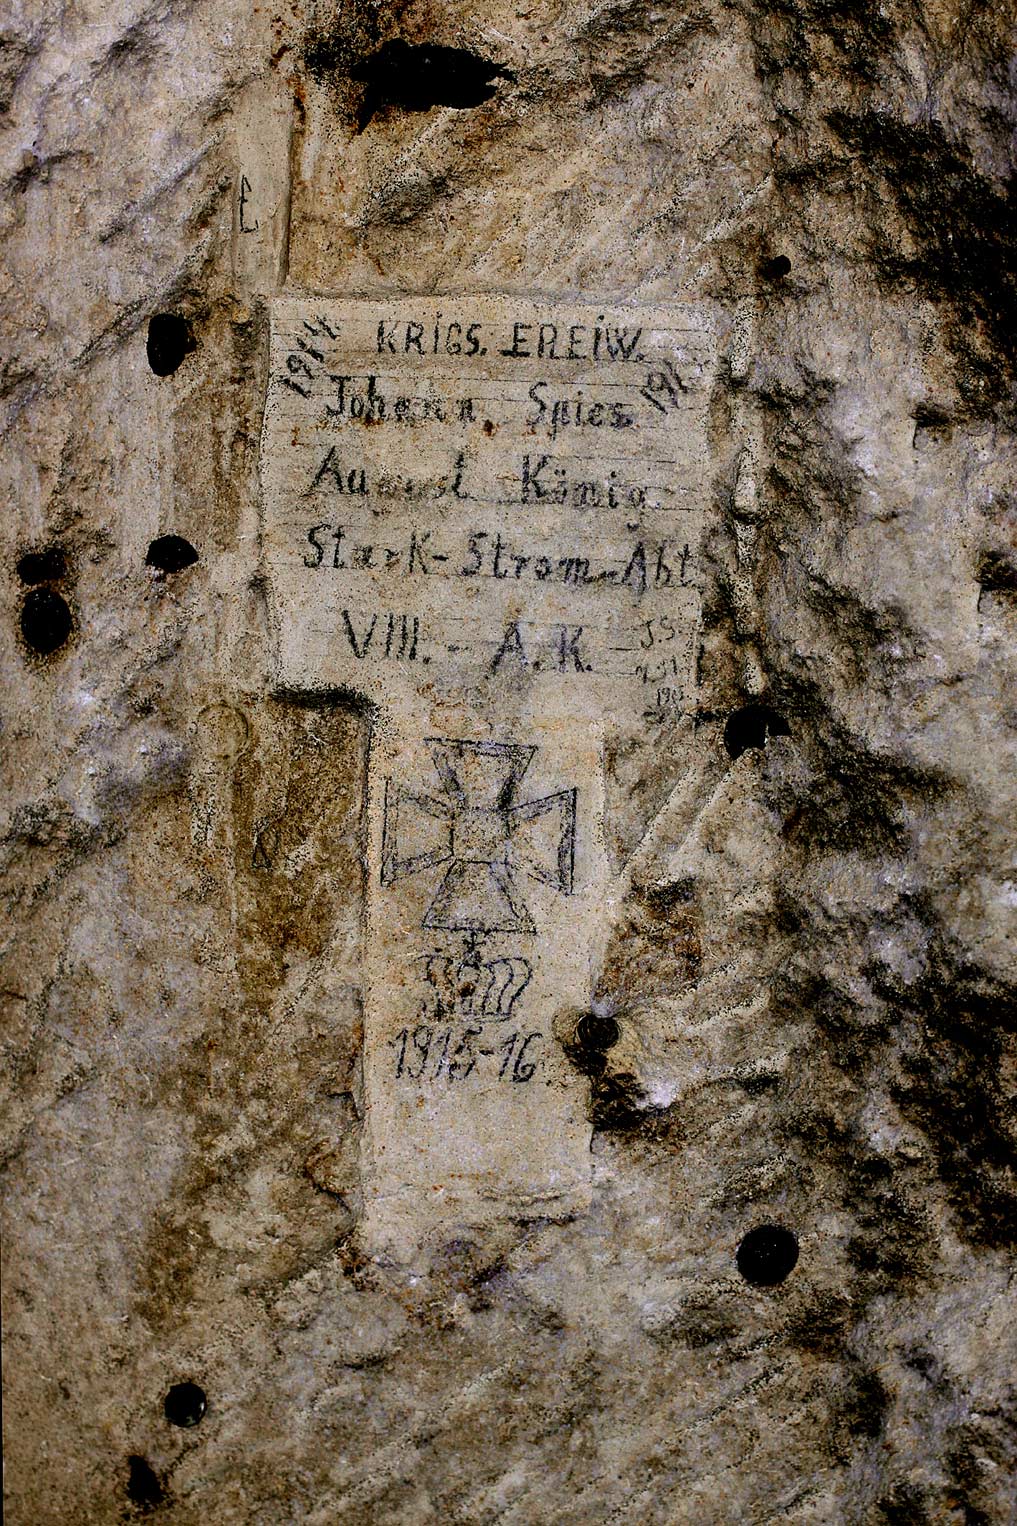 1914 KRIGS. FREIW. 191
Johann Spies
August König
Stark-Strom-Abt
VIII. - A. K.
J.S.
1915
1915-16